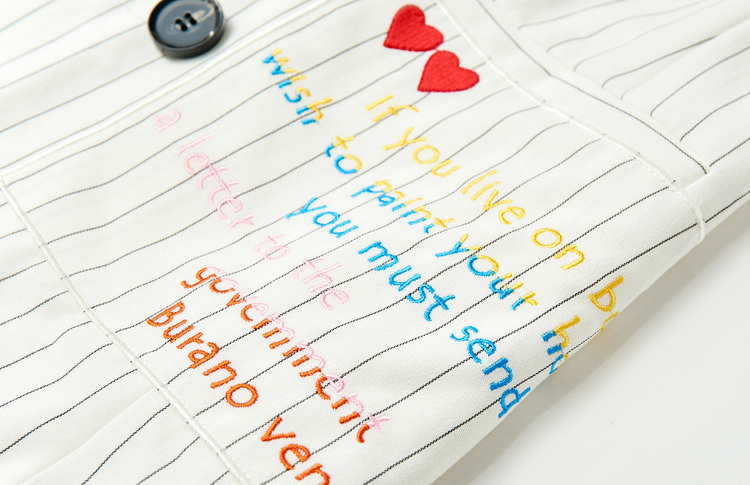 If you live on
wish to paint your
you must send
a letter to the
government
Burano